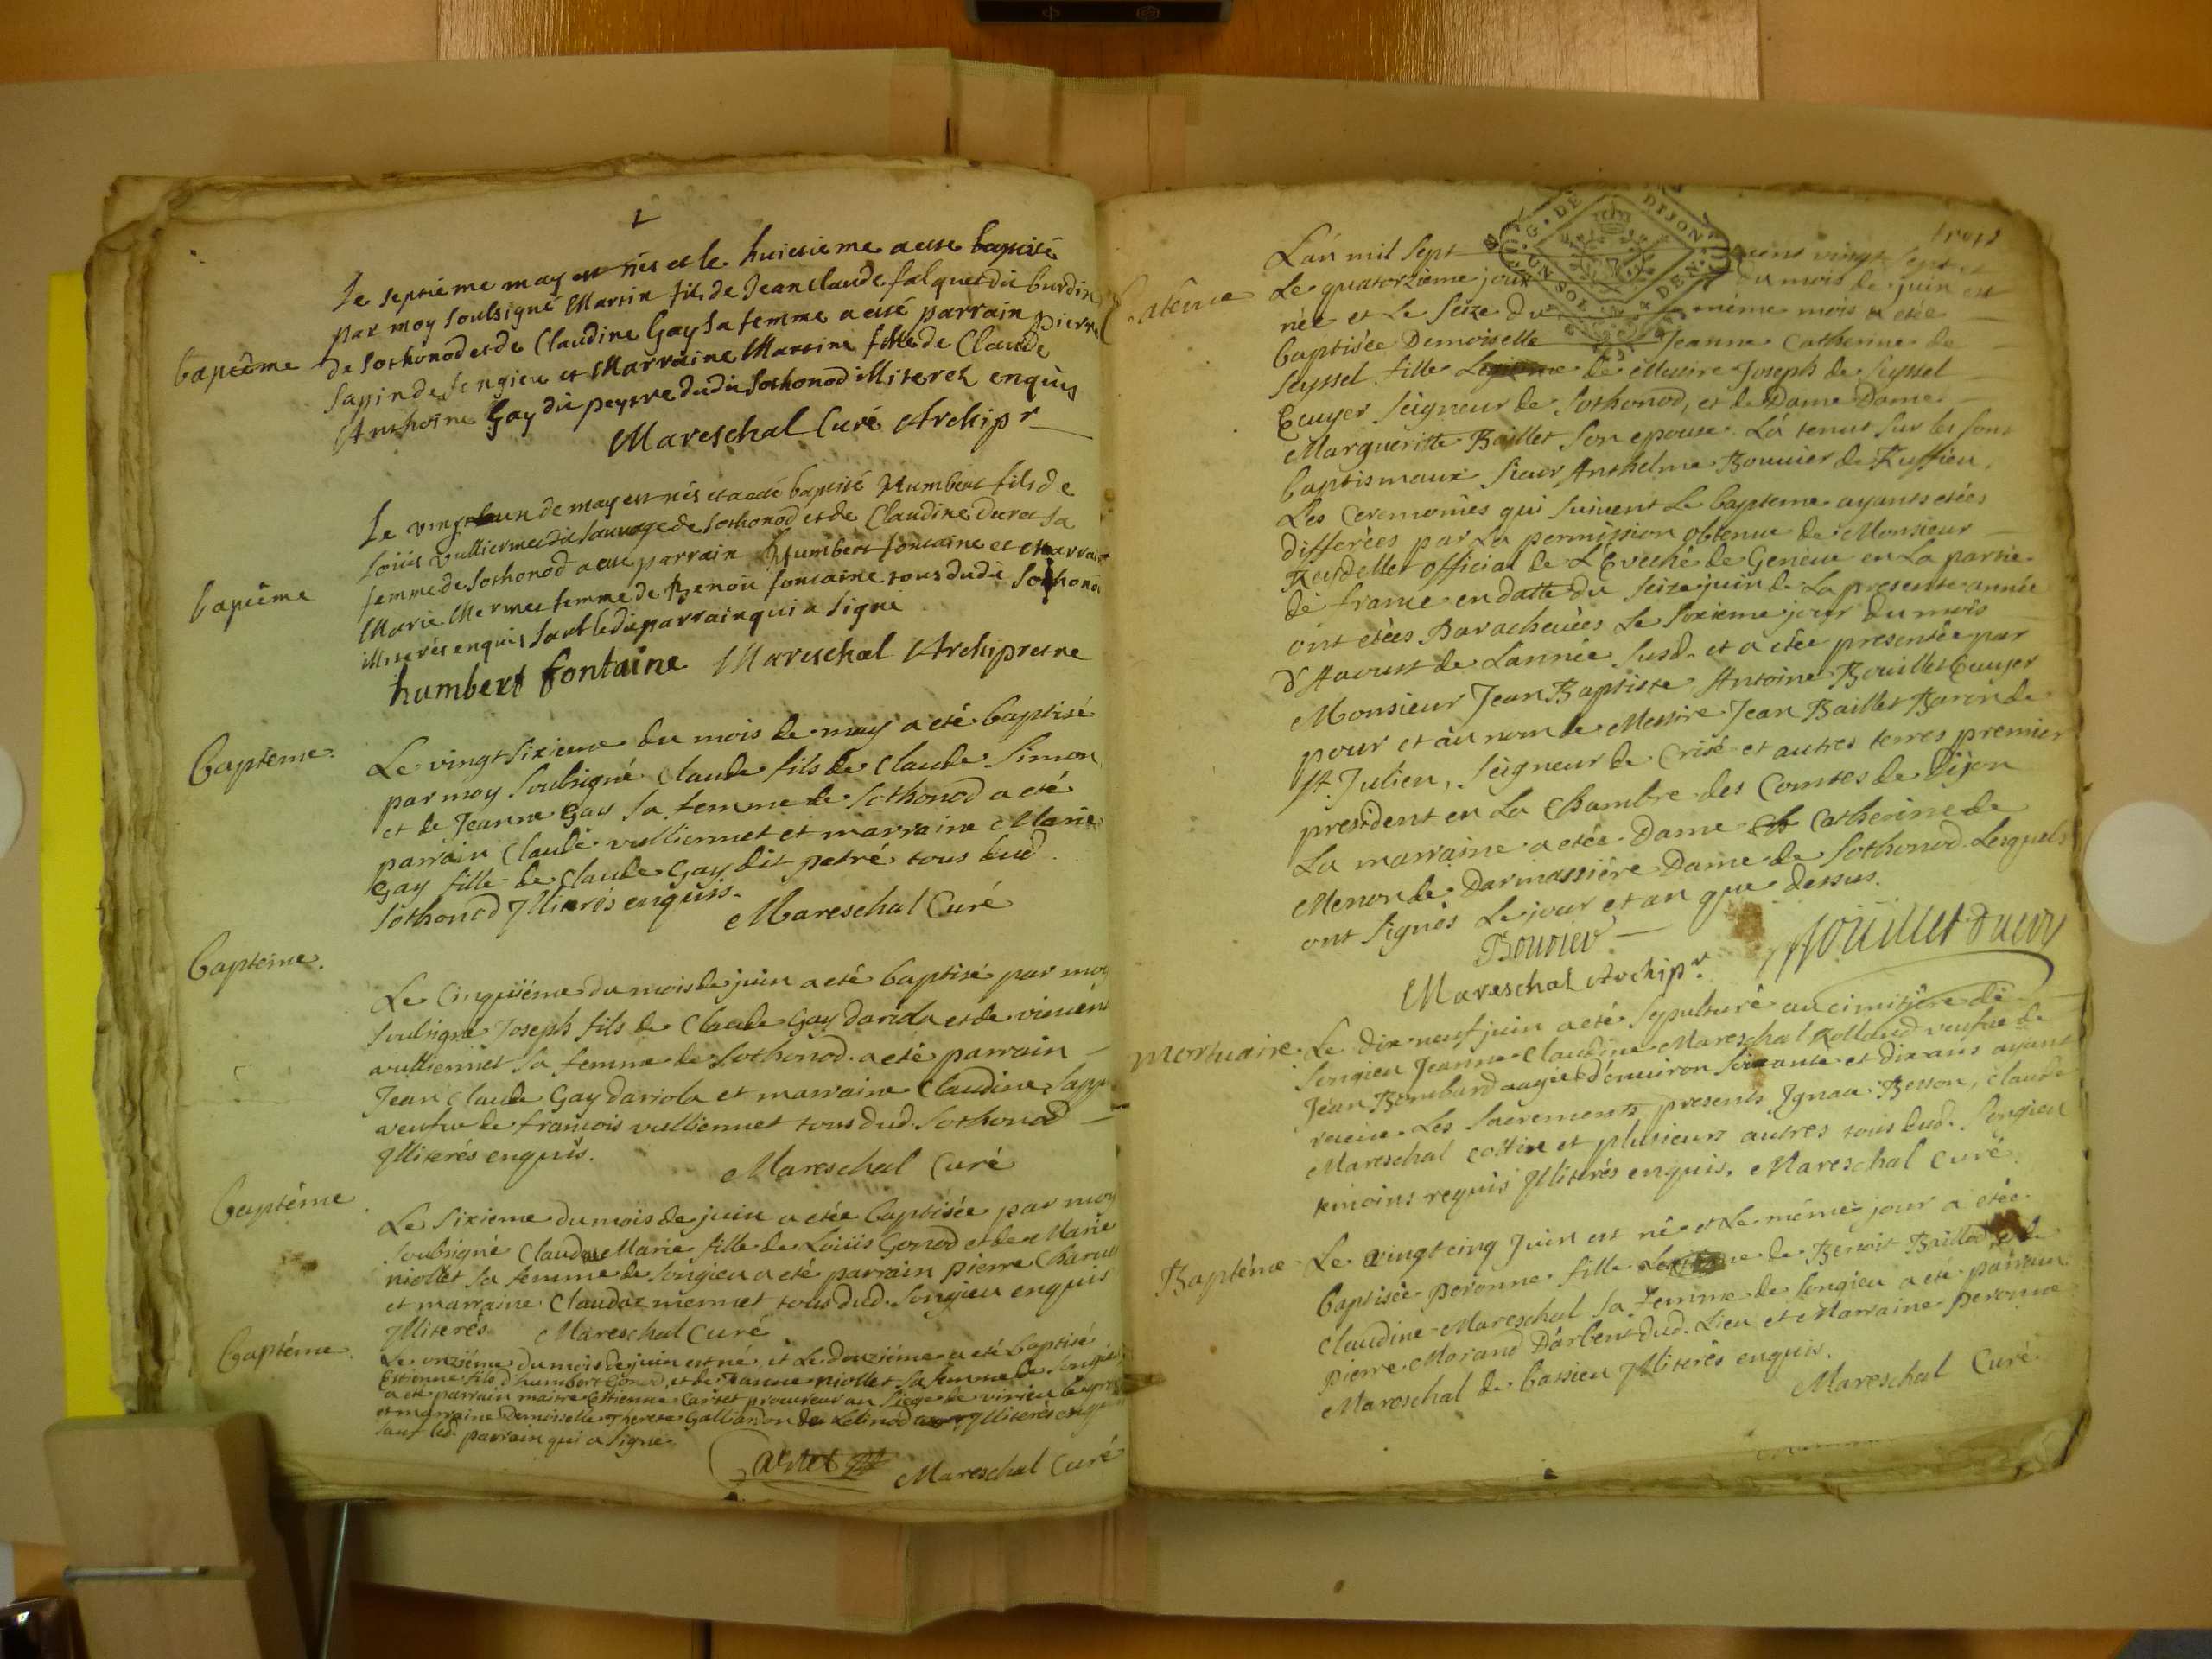 Le septième may est nés et le huictieme a esté baptisé
par moy soubsigné Martin fils de Jean Claude falquet du burdin
baptême
de Sothonod et de Claudine Gay sa femme a esté parrain pierre
Sapin de Songieu et Marraine Martine fille de Claude
Anthoine Gay dit peytre dudit Sothonod illiterés enquis
Mareschal Curé Archipr
Le vingt un de may est nés et a esté baptisé Humbert fils de
Louis Vulliermet dit Sauvage de Sothonod et de Claudine Duret sa
baptême
femme de Sothonod a esté parrain Humbert fontaine et Marraine
Marie Mermet femme de Benoit fontaine tous dudit Sothonod
illiterés enquis sauf ledit parrain qui a signé
humbert fontaine Mareschal Archipretre
Bapteme.
Le vingt sixieme du mois de may a eté baptisé
par moy soubsigné Claude fils de Claude Simon
et de Jeanne Gay sa femme de Sothonod a eté
parrain Claude vulliermet et marraine Marie
Gay fille de Claude Gay dit petré tous dud.
Sothonod Jlliterés enquis.
Mareschal Curé
Bapteme.
Le Cinquiéme du mois de juin a eté baptisé par moy
soubsigné Joseph fils de Claude Gay dariola et de
vulliermet sa femme de Sothonod. a eté parrain
Jean Claude Gay dariola et marraine Claudine
veufve de francois vulliermet tous dud. Sothonod
Jlliterés enquis.
Mareschal Curé
Baptéme.
Le sixieme du mois de juin a etée baptisée par moy
soubsigné Claudine Marie fille de Loüis Gonod et de Marie
niollet sa femme de Songieu a eté parrain pierre
et marraine Claudine mermet tous dud. Songieu enquis
Jlliterés. Mareschal Curé
Baptéme.
Le onziéme du mois de juin est né, et Le douziéme a eté baptisé
Estienne fils d'humbert Gonod, et de Jeanne niollet sa femme de Songieu
a eté parrain maitre Estienne Cartet procureur au siege de virieu le grand
et marraine Demoiselle Therese Galliardon de Jlliterés enquis
sauf led. parrain qui a signé.
Cartet Mareschal Curé
trois
G. DE DIJON
Batême
L'an mil sept cens vingt sept et
Le quatorzieme jour du mois de juin est
née et le seize du même mois a etée
baptisée Demoiselle Jeanne Catherine de
Seyssel fille de Messire Joseph de Seyssel
Ecuyer Seigneur de Sothonod, et de Dame Dame
Margueritte Baillet son epouse. L'a tenue sur les fons
baptismaux Sieur Anthelme Bouvier de Ruffieu.
Les Ceremonies qui suivent le bapteme ayants etées
differées par la permission obtenue de Monsieur
official de L'Eveché de Geneve en La partie
de france en datte du seize juin de La presente année
ont etées Parachevées Le sixieme jour du mois
d'Aoust de L'année susd. et a etée presentée par
Monsieur Jean Baptiste Antoine Bouillet Ecuyer
pour et au nom de Messire Jean Baillet Baron de
St. Julien, Seigneur de Crisé et autres terres premier
president en La Chambre des Comtes de Dijon
La marraine a etée Dame Catherine de
Menon de Darmassiére Dame de Sothonod. Lesquels
ont signés Le jour et an que dessus.
Bouvier
Mareschal Archipr.
mortuaire.
Le dix neuf juin a eté sepulturé au cimitiére de
Songieu Jeanne Claudine Mareschal Rolland veufve de
Jean Bombard d'environ soixante et dix ans ayant
receu Les Sacrements, presents Ignace Besson, claude
Mareschal et plusieurs autres tous dud. Songieu
temoins requis Jlliterés enquis. Mareschal Curé.
Baptéme
Le vingt cinq Juin est né et Le même jour a etée
baptisée peronne fille de Benoit et de
Claudine Mareschal sa femme de Songieu a eté parrain
pierre Morand D'arbent dud. Lieu et Marraine peronne
Mareschal de bassieu Jlliterés enquis.
Mareschal Curé